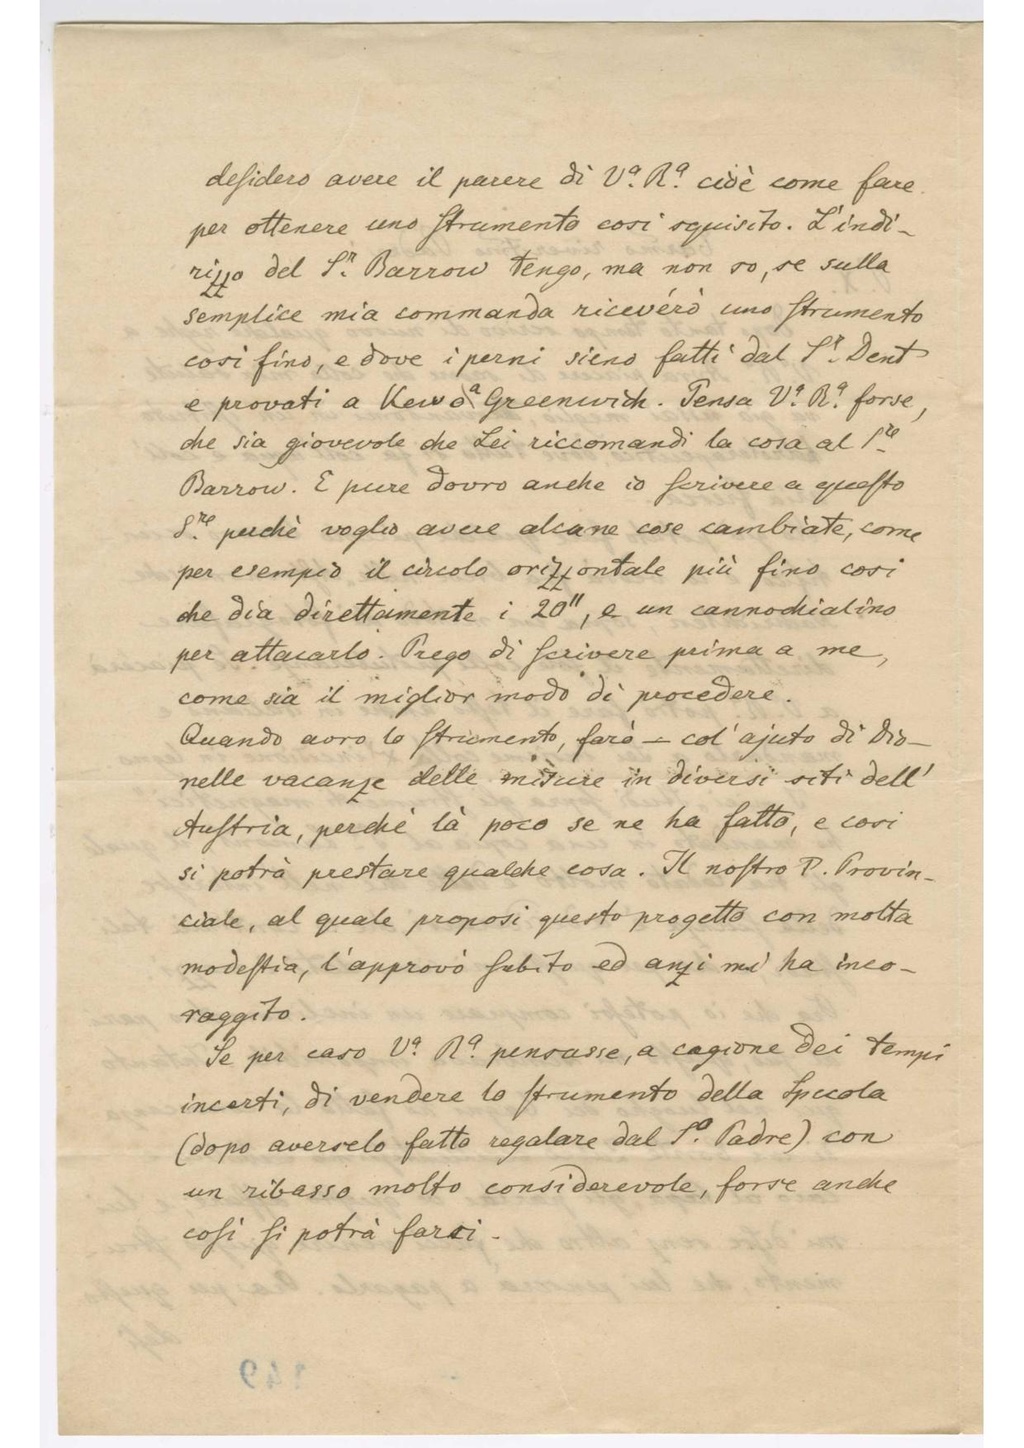 desidero avere il parere di Vᵃ. Rᵃ. cioè come fare
per ottenere uno strumento cosi squisito. L'indi-
rizzo del Sʳ. Barrow tengo, ma non so, se sulla
semplice mia commanda riceverò uno strumento
cosi fino, e dove i perni sieno fatti dal Sʳ. Dent
e provati a Kew o a Greenwich. Pensa Vᵃ. Rᵃ. forse,
che sia giovevole che Lei riccomandi la cosa al Sʳᵉ.
Barrow. E pure dovro anche io scrivere a questo
Sʳᵉ. perchè voglio avere alcune cose cambiate, come
per esempio il circolo orizzontale più fino cosi
che dia direttamente i 20", e un cannochialino
per attacarlo. Prego di scrivere prima a me,
come sia il miglior modo di procedere.
Quando avro lo strumento, farò – col'ajuto di Dio –
nelle vacanze delle misure in diversi siti dell'
Austria, perchè là poco se ne ha fatto, e cosi
si potrà prestare qualche cosa. Il nostro P. Provin-
ciale, al quale proposi questo progetto con molta
modestia, l'approvò subito ed anzi mi ha inco-
raggito.
Se per caso Vᵃ. Rᵃ. pensasse, a cagione dei tempi
incerti, di vendere lo strumento della Specola
(dopo averselo fatto regalare dal Sᵒ. Padre) con
un ribasso molto considerevole, forse anche
cosi si potrà farsi.